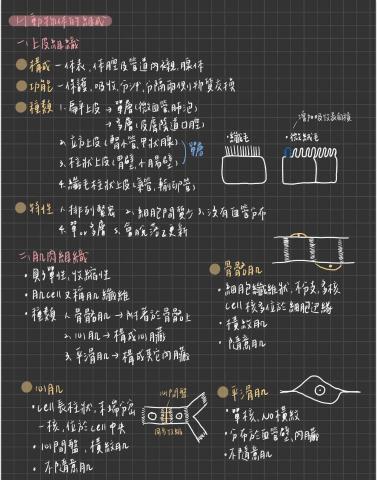 動物体的組成
一、上皮組織
構成 - 体表、体腔及管道內襯、腺体
功能 - 保護、吸收、分泌、分隔兩側物質交換
種類 1. 扁平上皮 → 單層(微血管、肺泡)
→ 多層(皮膚、陰道、口腔)
2. 立方上皮(腎小管、甲狀腺)
3. 柱狀上皮(胃壁、小腸壁)
單層
4. 纖毛柱狀上皮(氣管、輸卵管)
增加吸收表面積
·纖毛
·微絨毛
特性 1. 排列緊密 2. 細胞間質少 3. 沒有血管分布
4. 單、多層 5. 會脫落及更新
二、肌肉組織
· 具多單性、收縮性
· 肌cell又稱肌纖維
· 種類 1. 骨骼肌 → 附著於骨骼上
2. 心肌 → 構成心臟
3. 平滑肌 → 構成其它內臟
骨骼肌
· 細胞纖維狀、不分支、多核
cell核多位於細胞边緣
· 橫紋肌
· 隨意肌
心肌
· cell長柱狀、末端分岔
一核,位於cell中央
· 心間盤、橫紋肌
· 不隨意肌
心間盤
同步收縮
平滑肌
· 單核、No橫紋
· 分布於血管壁、內臟
· 不隨意肌